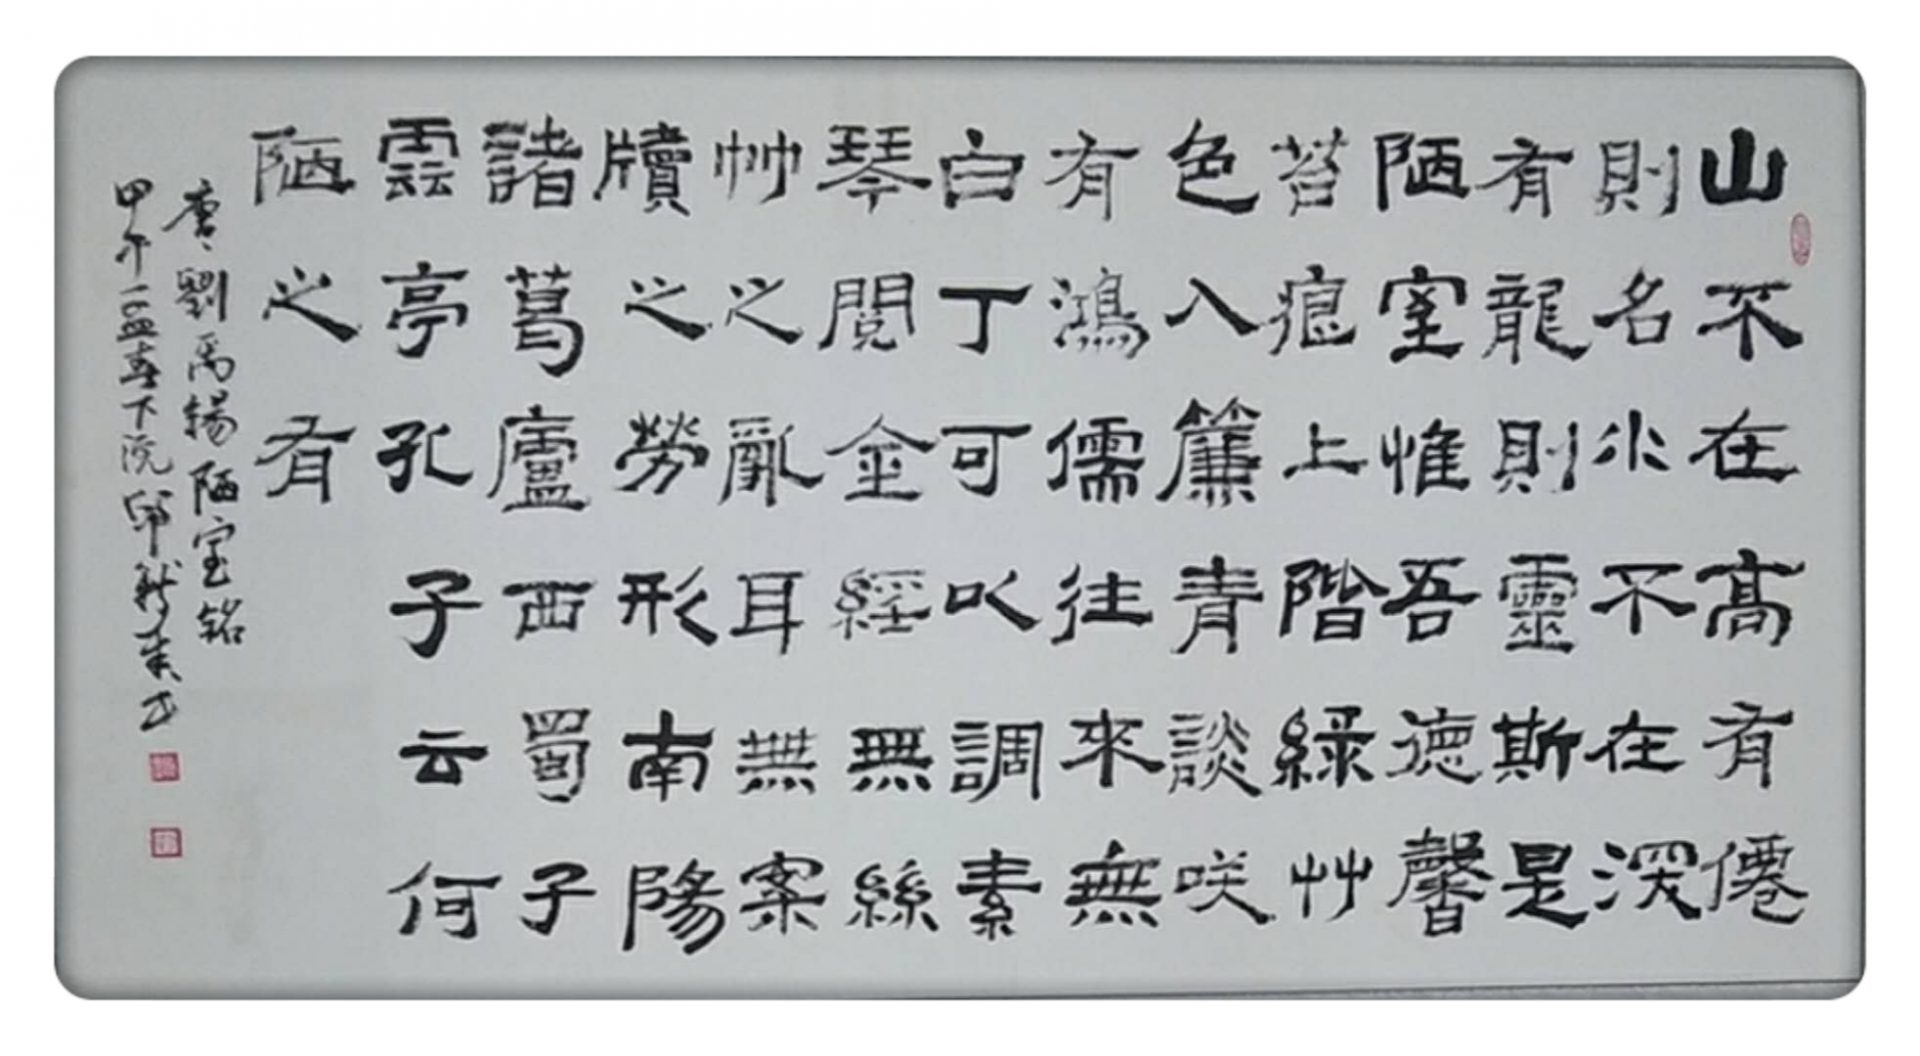 山不在高有僊
則名水不在深
有龍則靈斯是
陋室惟吾德馨
苔痕上階綠艸
色入簾青談咲
有鴻儒往來無
白丁可以調素
琴閱金經無絲
竹之亂耳無案
牘之勞形南陽
諸葛廬西蜀子
雲亭孔子云何
陋之有
唐劉禹錫陋室銘
甲午春下浣邱